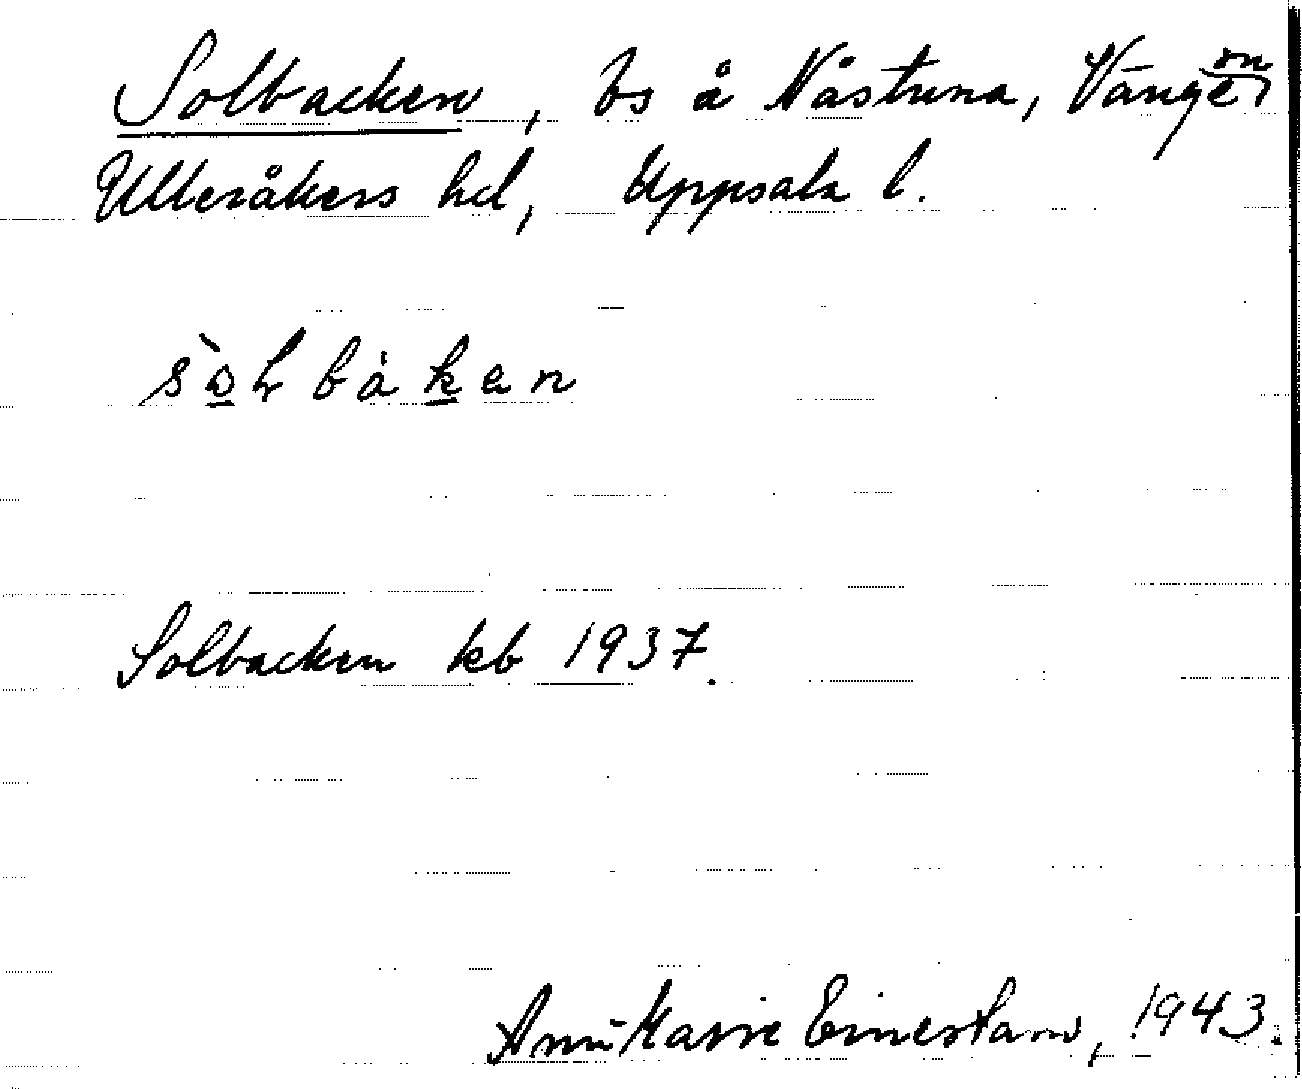 Solbacken, bs å Nåstuna, Vänge sn,
Ulleråkers hd, Uppsala l.
sòlbáken
Solbacken kb 1937.
1943.